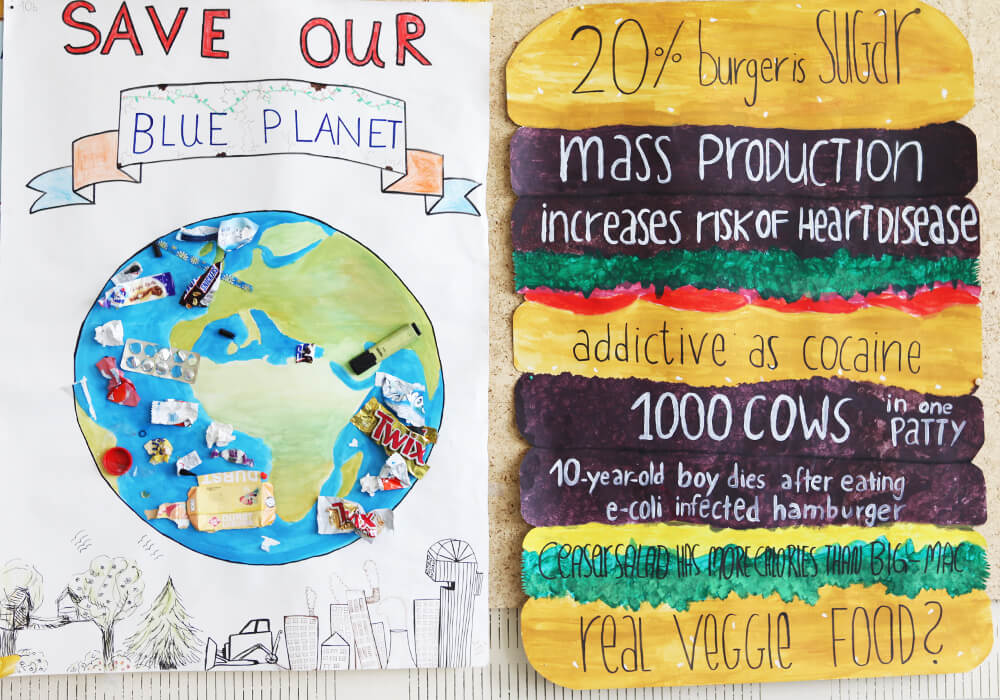 10b
SAVE OUR
BLUE PLANET
SNICKERS
TWIX
TWIX
20% burger is SUGAR
mass PRODUCTION
increases RISK OF HEART DISEASE
addictive as cocaine
1000 COWS in one PATTY
10-year-old boy dies after eating
e-coli infected hamburger
Ceasar SALAD HAS MORE CALORIES THAN BIG-MAC
real VEGGIE FOOD?